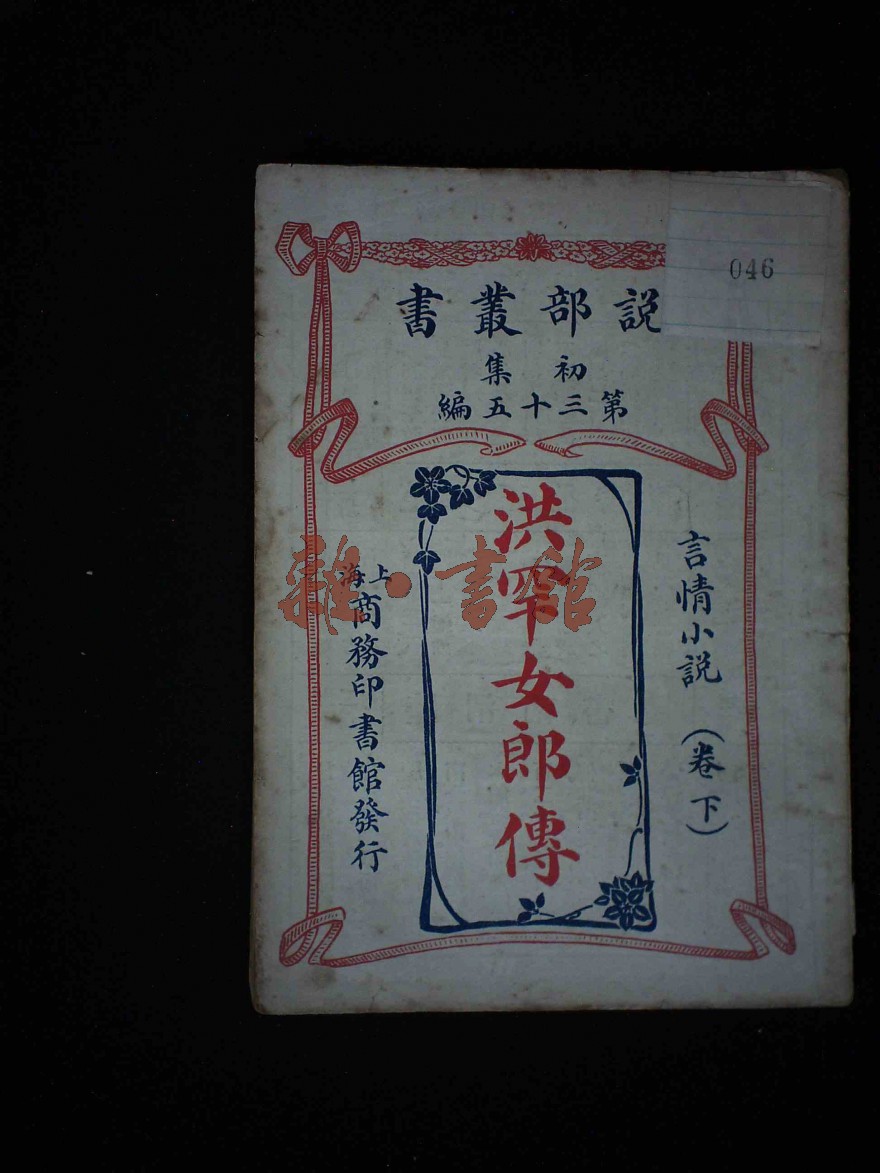 046
説部叢書
初集
第三十五編
言情小説 (卷下)
洪罕女郎傳
上海
商務印書館發行
雜·書館